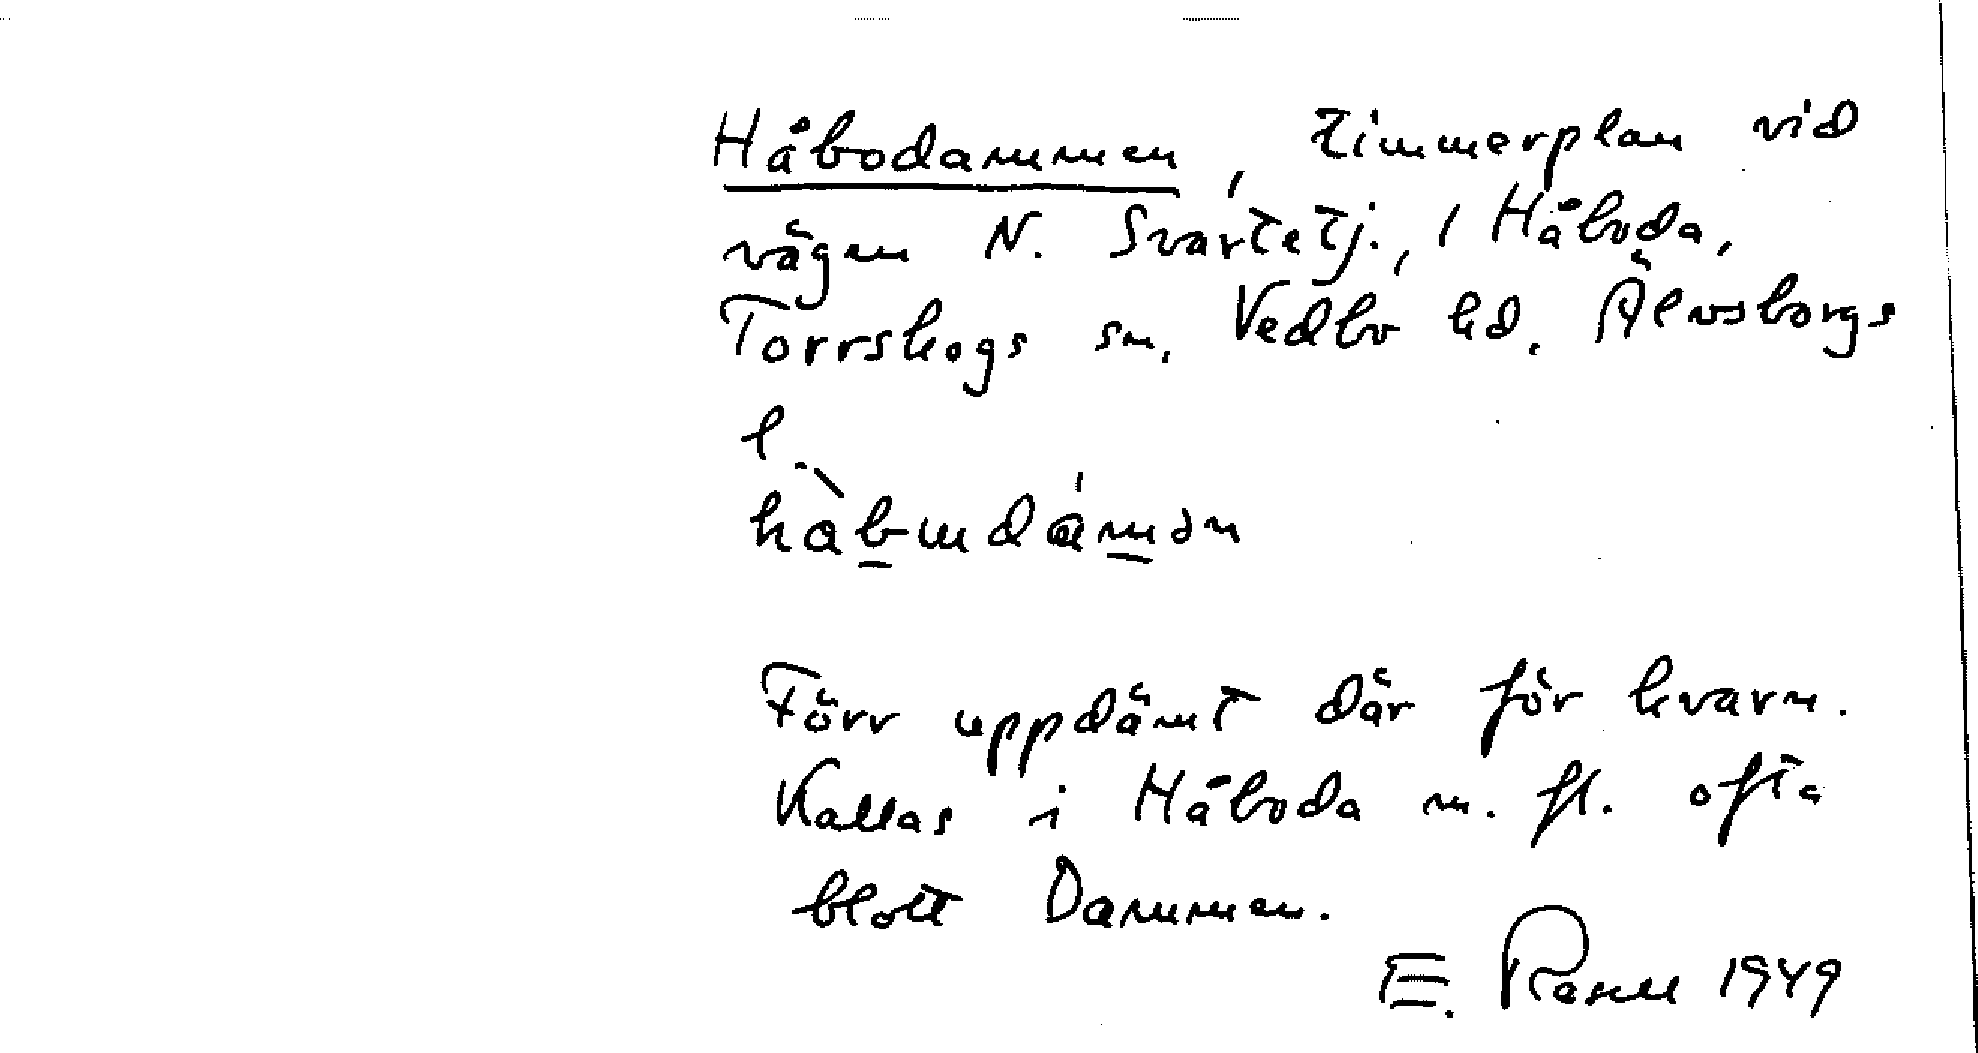 Håbodammen, timmerplan vid
vägen N. Svartetj., i Håboda,
Torrskogs sn, Vedbo hd. Älvsborgs
l.
Förr uppdämt där för kvarn.
Kallas i Håboda m. fl. ofta
blott Dammen.
E. 1949